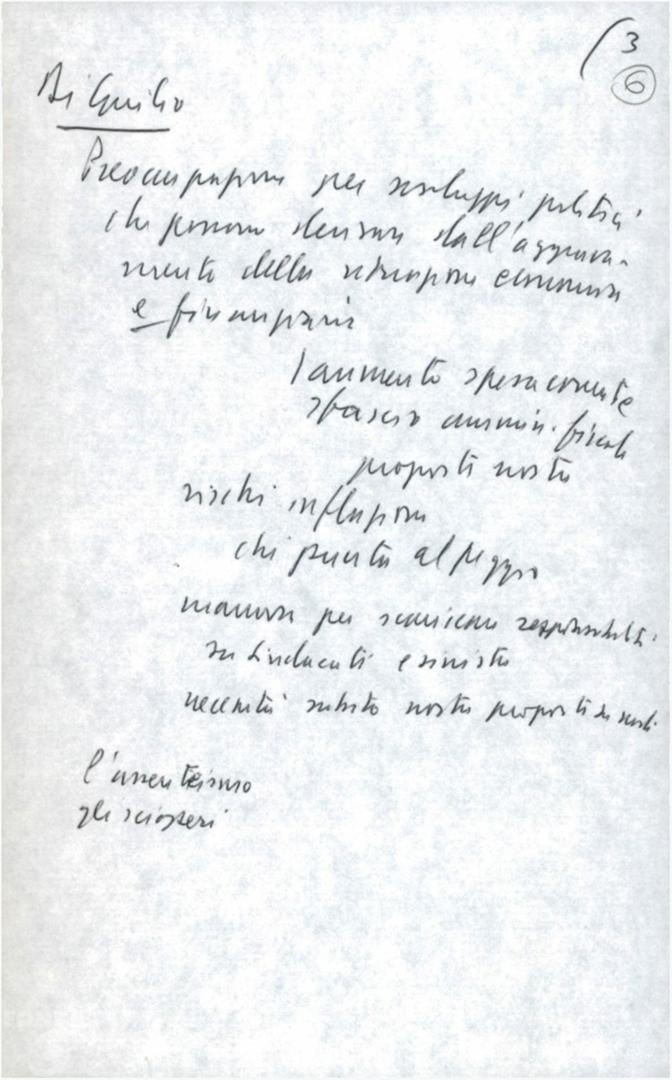 3
6
Di Giulio
Preoccupazioni per sviluppi politici
che possono derivare dall'aggrava-
mento della situazione economica
e finanziaria
aumento spesa corrente
sfascio ammin. fiscale
proposte nostre
rischi inflazione
chi punta al peggio
manovra per scaricare responsabilità
su sindacati e sinistra
necessità subito nostre proposte su
l'assenteismo
gli scioperi